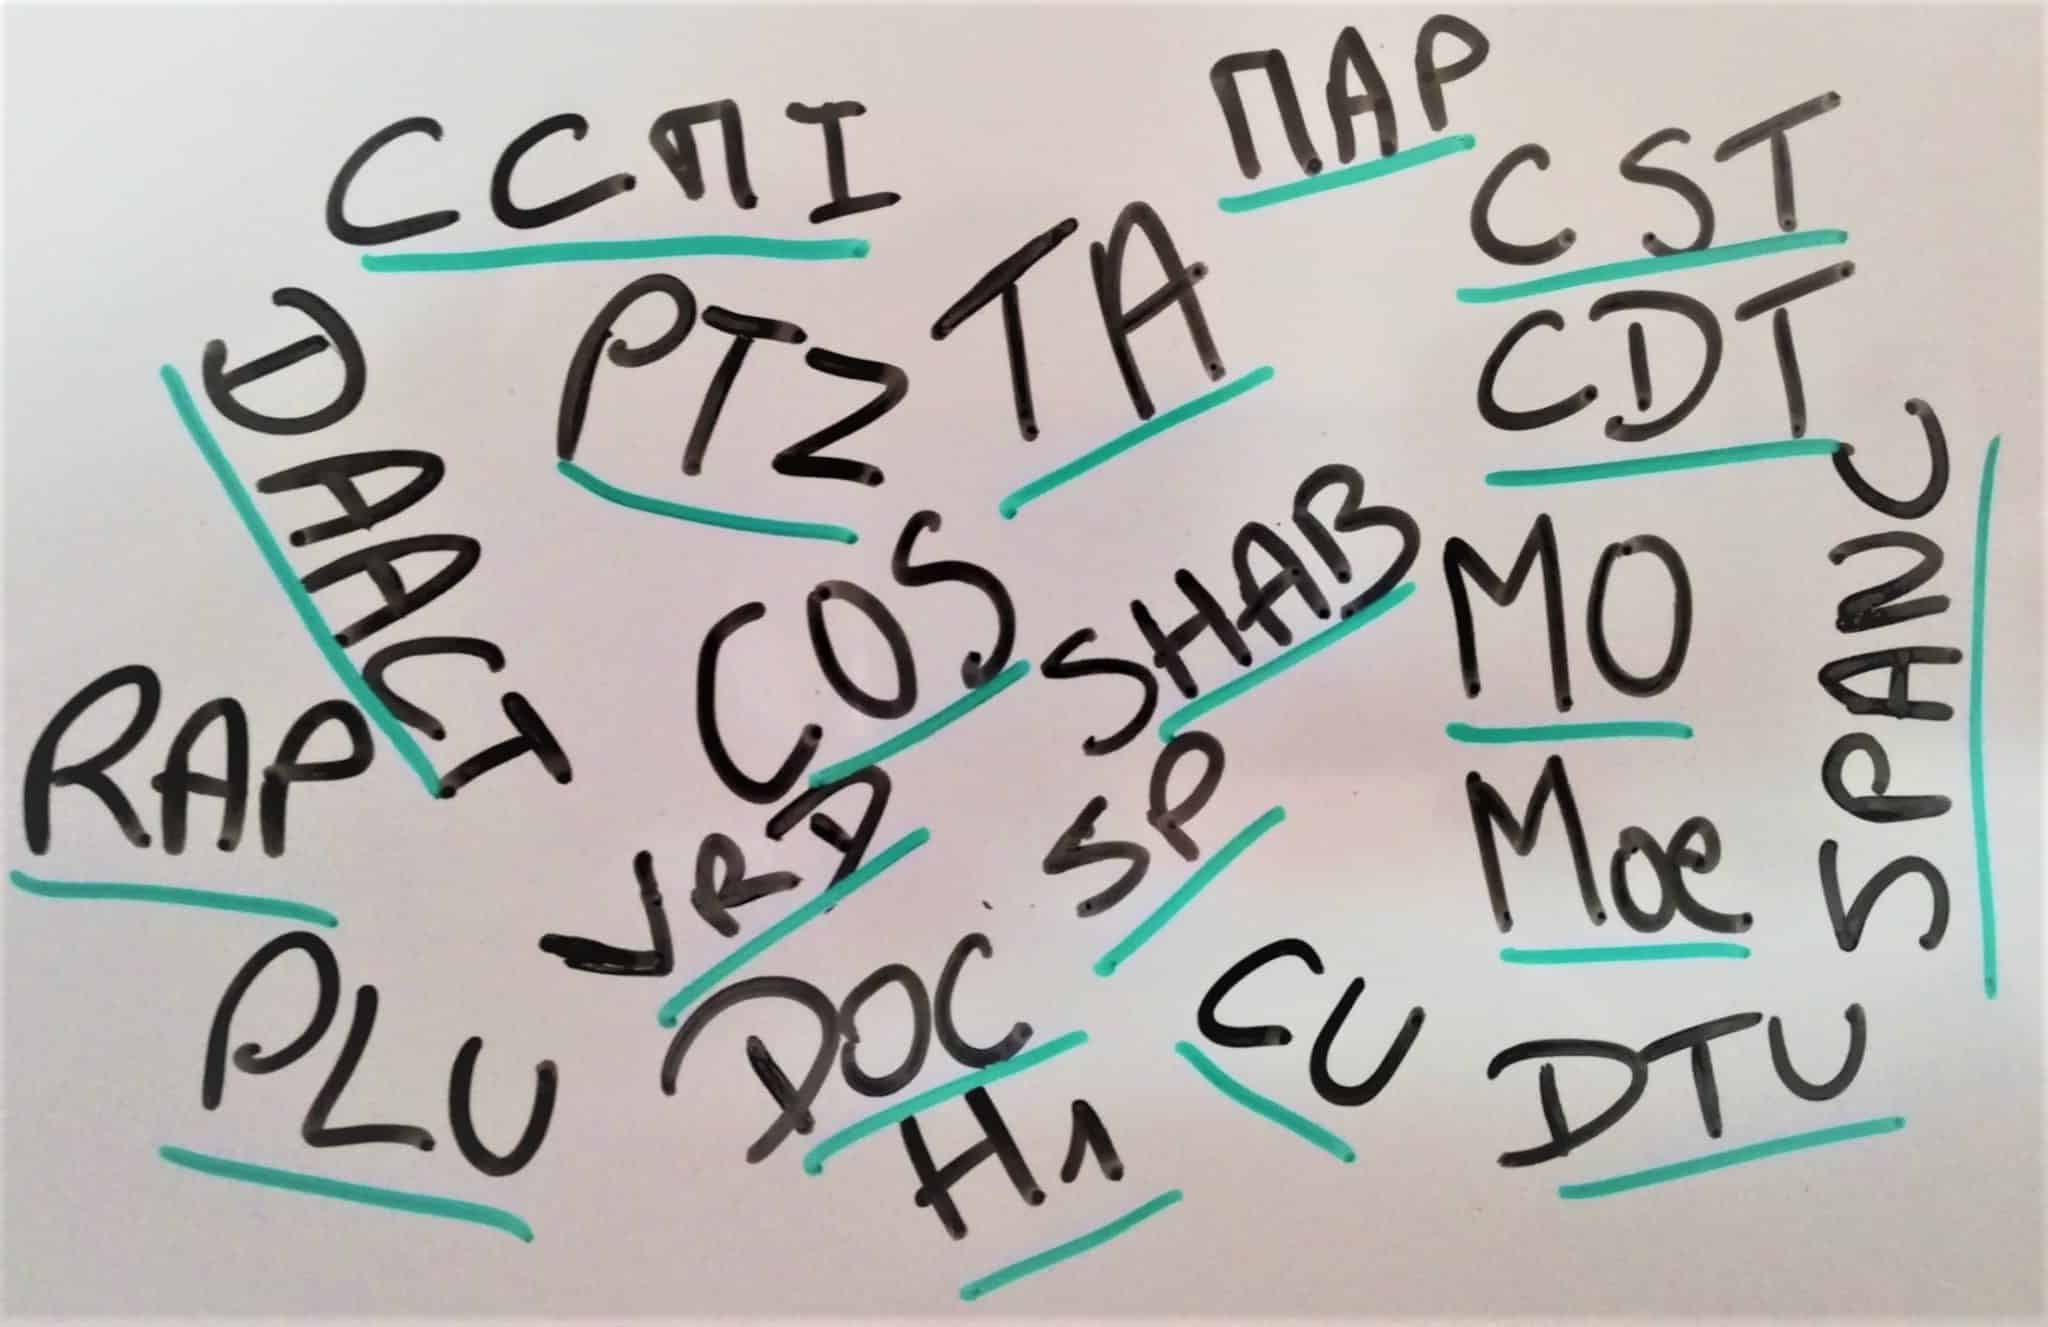 CCMI
MAP
CST
PTZ
TA
CDT
DAACT
COS
SHAB
MO
SPANC
RAP
VRD
SP
MOe
PLU
DOC
CU
DTU
H1